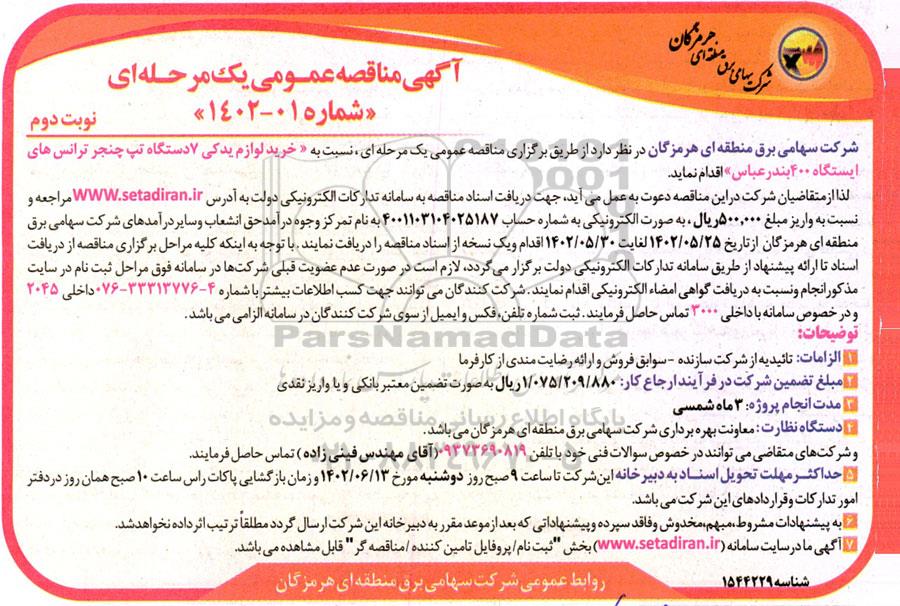 شرکت سهامی برق منطقه‌ای هرمزگان
آگهی مناقصه عمومی یک مرحله‌ای
«شماره ۰۱-۱۴۰۲»
نوبت دوم
شرکت سهامی برق منطقه ای هرمزگان در نظر دارد از طریق برگزاری مناقصه عمومی یک مرحله ای ، نسبت به « خرید لوازم یدکی ۷ دستگاه تپ چنجر ترانس های
ایستگاه ۴۰۰ بندرعباس» اقدام نماید.
لذا از متقاضیان شرکت در این مناقصه دعوت به عمل می آید، جهت دریافت اسناد مناقصه به سامانه تدارکات الکترونیکی دولت به آدرس WWW.setadiran.ir مراجعه و
نسبت به واریز مبلغ ۵۰۰,۰۰۰ ریال ، به صورت الکترونیکی به شماره حساب ۴۰۰۱۱۰۳۱۰۴۰۲۵۱۸۷ به نام تمرکز وجوه درآمد حق انشعاب و سایر درآمدهای شرکت سهامی برق
منطقه ای هرمزگان از تاریخ ۱۴۰۲/۰۵/۲۵ لغایت ۱۴۰۲/۰۵/۳۰ اقدام و یک نسخه از اسناد مناقصه را دریافت نمایند . با توجه به اینکه کلیه مراحل برگزاری مناقصه از دریافت
اسناد تا ارائه پیشنهاد از طریق سامانه تدارکات الکترونیکی دولت برگزار می گردد، لازم است در صورت عدم عضویت قبلی شرکت‌ها در سامانه فوق مراحل ثبت نام در سایت
مذکور انجام و نسبت به دریافت گواهی امضاء الکترونیکی اقدام نمایند . شرکت کنندگان می توانند جهت کسب اطلاعات بیشتر با شماره ۴-۳۳۳۱۳۷۷۶-۰۷۶ داخلی ۲۰۴۵
و در خصوص سامانه با داخلی ۳۰۰۰ تماس حاصل فرمایند . ثبت شماره تلفن، فکس و ایمیل از سوی شرکت کنندگان در سامانه الزامی می باشد .
توضیحات:
۱ الزامات: تائیدیه از شرکت سازنده - سوابق فروش و ارائه رضایت مندی از کارفرما
۲ مبلغ تضمین شرکت در فرآیند ارجاع کار: ۱/۰۷۵/۲۰۹/۸۸۰ ریال به صورت تضمین معتبر بانکی و یا واریز نقدی
۳ مدت انجام پروژه: ۳ ماه شمسی
۴ دستگاه نظارت : معاونت بهره برداری شرکت سهامی برق منطقه ای هرمزگان می باشد.
و شرکت‌های متقاضی می توانند در خصوص سوالات فنی خود با تلفن ۰۹۳۷۳۶۹۰۸۱۹ ( آقای مهندس فینی زاده ) تماس حاصل فرمایند.
۵ حداکثر مهلت تحویل اسناد به دبیرخانه این شرکت تا ساعت ۹ صبح روز دوشنبه مورخ ۱۴۰۲/۰۶/۱۳ و زمان بازگشایی پاکات راس ساعت ۱۰ صبح همان روز در دفتر
امور تدارکات و قراردادهای این شرکت می باشد.
۶ به پیشنهادات مشروط، مبهم، مخدوش و فاقد سپرده و پیشنهاداتی که بعد از موعد مقرر به دبیرخانه این شرکت ارسال گردد مطلقاً ترتیب اثر داده نخواهد شد.
۷ آگهی ما در سایت سامانه (www.setadiran.ir) بخش "ثبت نام/ پروفایل تامین کننده /مناقصه گر" قابل مشاهده می باشد.
شناسه ۱۵۴۴۲۲۹
روابط عمومی شرکت سهامی برق منطقه ای هرمزگان
ParsNamadData
پایگاه اطلاع رسانی مناقصه و مزایده